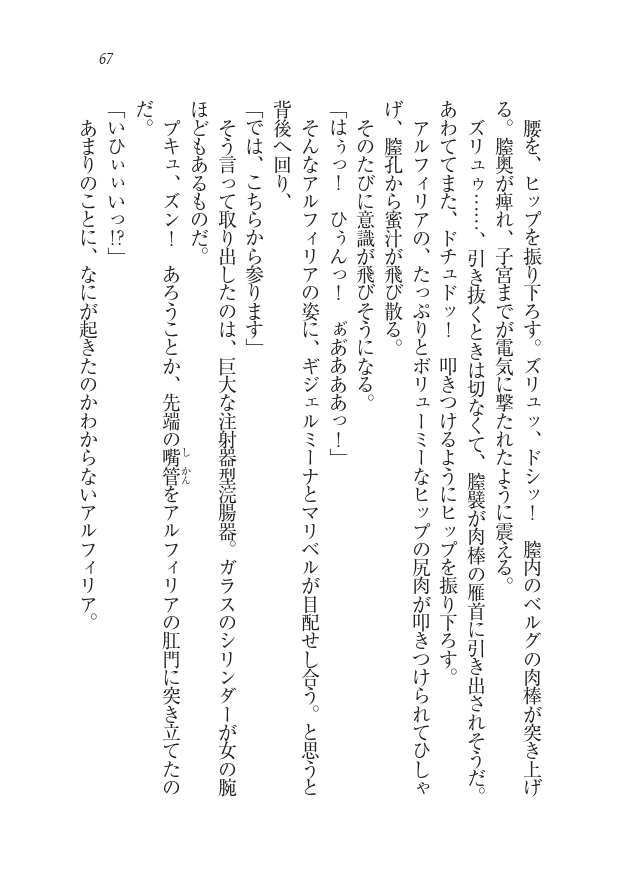 67
　腰を、ヒップを振り下ろす。ズリュッ、ドシッ！　膣内のベルグの肉棒が突き上げ
る。膣奥が痺れ、子宮までが電気に撃たれたように震える。
　ズリュゥ……、引き抜くときは切なくて、膣襞が肉棒の雁首に引き出されそうだ。
あわててまた、ドチュドッ！　叩きつけるようにヒップを振り下ろす。
　アルフィリアの、たっぷりとボリューミーなヒップの尻肉が叩きつけられてひしゃ
げ、膣孔から蜜汁が飛び散る。
　そのたびに意識が飛びそうになる。
「はぅっ！　ひぅんっ！　ぁあ゛あああっ！」
　そんなアルフィリアの姿に、ギジェルミーナとマリベルが目配せし合う。と思うと
背後へ回り、
「では、こちらから参ります」
　そう言って取り出したのは、巨大な注射器型浣腸器。ガラスのシリンダーが女の腕
ほどもあるものだ。
　プキュ、ズン！　あろうことか、先端の嘴管をアルフィリアの肛門に突き立てたの
しかん
だ。
「いひぃぃいっ!?」
　あまりのことに、なにが起きたのかわからないアルフィリア。